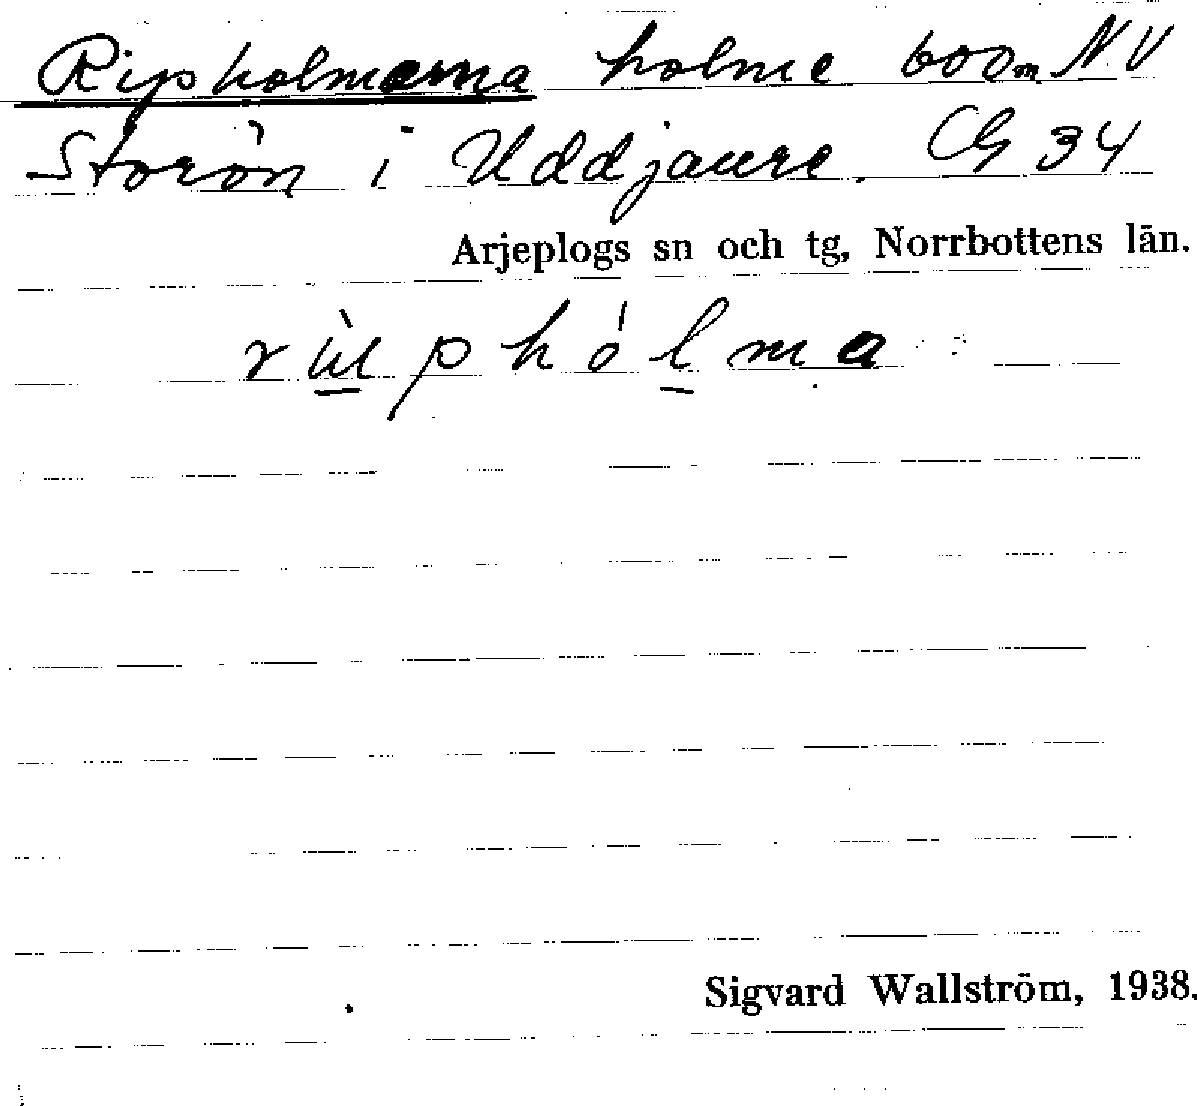 Ripholmarna holme 600m NV
Storön i Uddjaure. CG 34
Arjeplogs sn och tg, Norrbottens län.
rìıphólma
Sigvard Wallström, 1938.